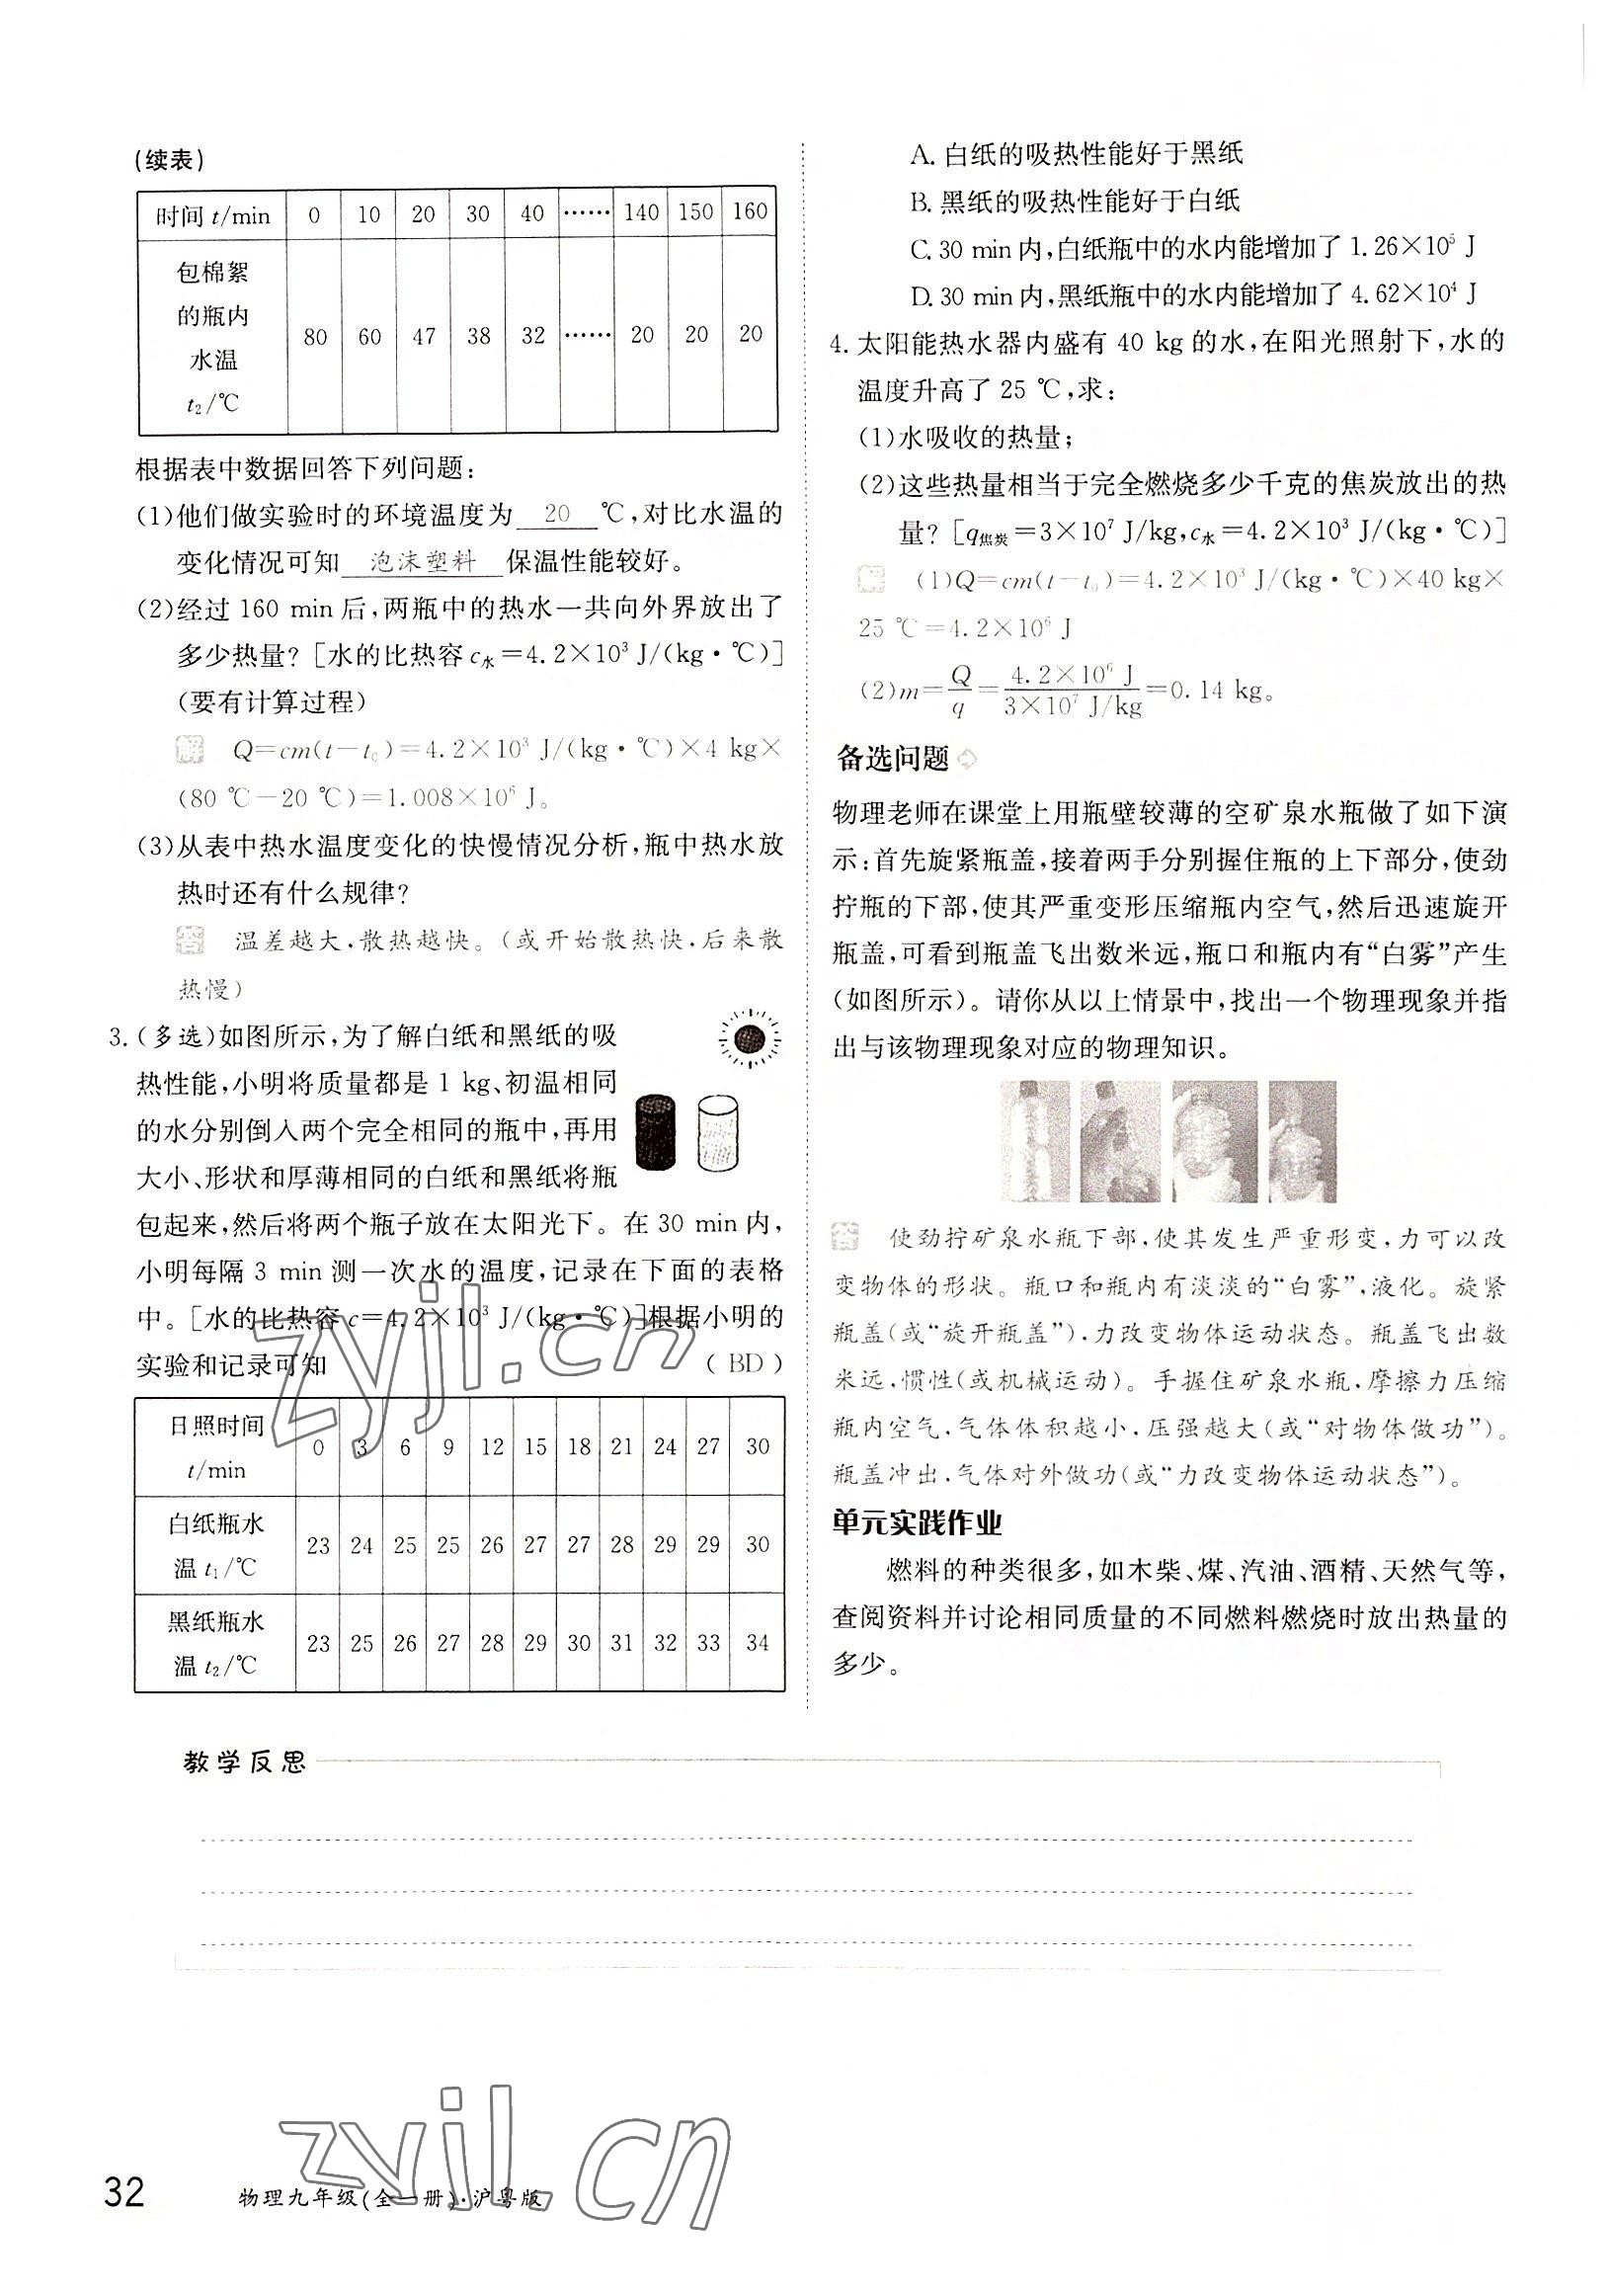 (续表)
时间 t/min 0 10 20 30 40 …… 140 150 160
包棉絮
的瓶内
水温
t₂/℃
80 60 47 38 32 …… 20 20 20
根据表中数据回答下列问题:
(1)他们做实验时的环境温度为 20 ℃,对比水温的
变化情况可知 泡沫塑料 保温性能较好。
(2)经过 160 min 后,两瓶中的热水一共向外界放出了
多少热量?[水的比热容 c水=4.2×10³ J/(kg·℃)]
(要有计算过程)
解 Q=cm(t-t₀)=4.2×10³ J/(kg·℃)×4 kg×
(80 ℃-20 ℃)=1.008×10⁶ J。
(3)从表中热水温度变化的快慢情况分析,瓶中热水放
热时还有什么规律?
答 温差越大,散热越快。(或开始散热快,后来散
热慢)
3.(多选)如图所示,为了解白纸和黑纸的吸
热性能,小明将质量都是 1 kg、初温相同
的水分别倒入两个完全相同的瓶中,再用
大小、形状和厚薄相同的白纸和黑纸将瓶
包起来,然后将两个瓶子放在太阳光下。在 30 min 内,
小明每隔 3 min 测一次水的温度,记录在下面的表格
中。[水的比热容 c=4.2×10³ J/(kg·℃)]根据小明的
实验和记录可知 (BD)
日照时间
t/min
0 3 6 9 12 15 18 21 24 27 30
白纸瓶水
温 t₁/℃
23 24 25 25 26 27 27 28 29 29 30
黑纸瓶水
温 t₂/℃
23 25 26 27 28 29 30 31 32 33 34
A. 白纸的吸热性能好于黑纸
B. 黑纸的吸热性能好于白纸
C. 30 min 内,白纸瓶中的水内能增加了 1.26×10⁵ J
D. 30 min 内,黑纸瓶中的水内能增加了 4.62×10⁴ J
4. 太阳能热水器内盛有 40 kg 的水,在阳光照射下,水的
温度升高了 25 ℃,求:
(1)水吸收的热量;
(2)这些热量相当于完全燃烧多少千克的焦炭放出的热
量?[q焦炭=3×10⁷ J/kg,c水=4.2×10³ J/(kg·℃)]
解 (1)Q=cm(t-t₀)=4.2×10³ J/(kg·℃)×40 kg×
25 ℃=4.2×10⁶ J
(2)m=Q/q=4.2×10⁶ J/3×10⁷ J/kg=0.14 kg。
备选问题
物理老师在课堂上用瓶壁较薄的空矿泉水瓶做了如下演
示:首先旋紧瓶盖,接着两手分别握住瓶的上下部分,使劲
拧瓶的下部,使其严重变形压缩瓶内空气,然后迅速旋开
瓶盖,可看到瓶盖飞出数米远,瓶口和瓶内有“白雾”产生
(如图所示)。请你从以上情景中,找出一个物理现象并指
出与该物理现象对应的物理知识。
答 使劲拧矿泉水瓶下部,使其发生严重形变,力可以改
变物体的形状。瓶口和瓶内有淡淡的“白雾”,液化。旋紧
瓶盖(或“旋开瓶盖”),力改变物体运动状态。瓶盖飞出数
米远,惯性(或机械运动)。手握住矿泉水瓶,摩擦力压缩
瓶内空气,气体体积越小,压强越大(或“对物体做功”)。
瓶盖冲出,气体对外做功(或“力改变物体运动状态”)。
单元实践作业
燃料的种类很多,如木柴、煤、汽油、酒精、天然气等,
查阅资料并讨论相同质量的不同燃料燃烧时放出热量的
多少。
教学反思
zyjl.cn
zyjl.cn
32 物理九年级(全一册)·沪粤版